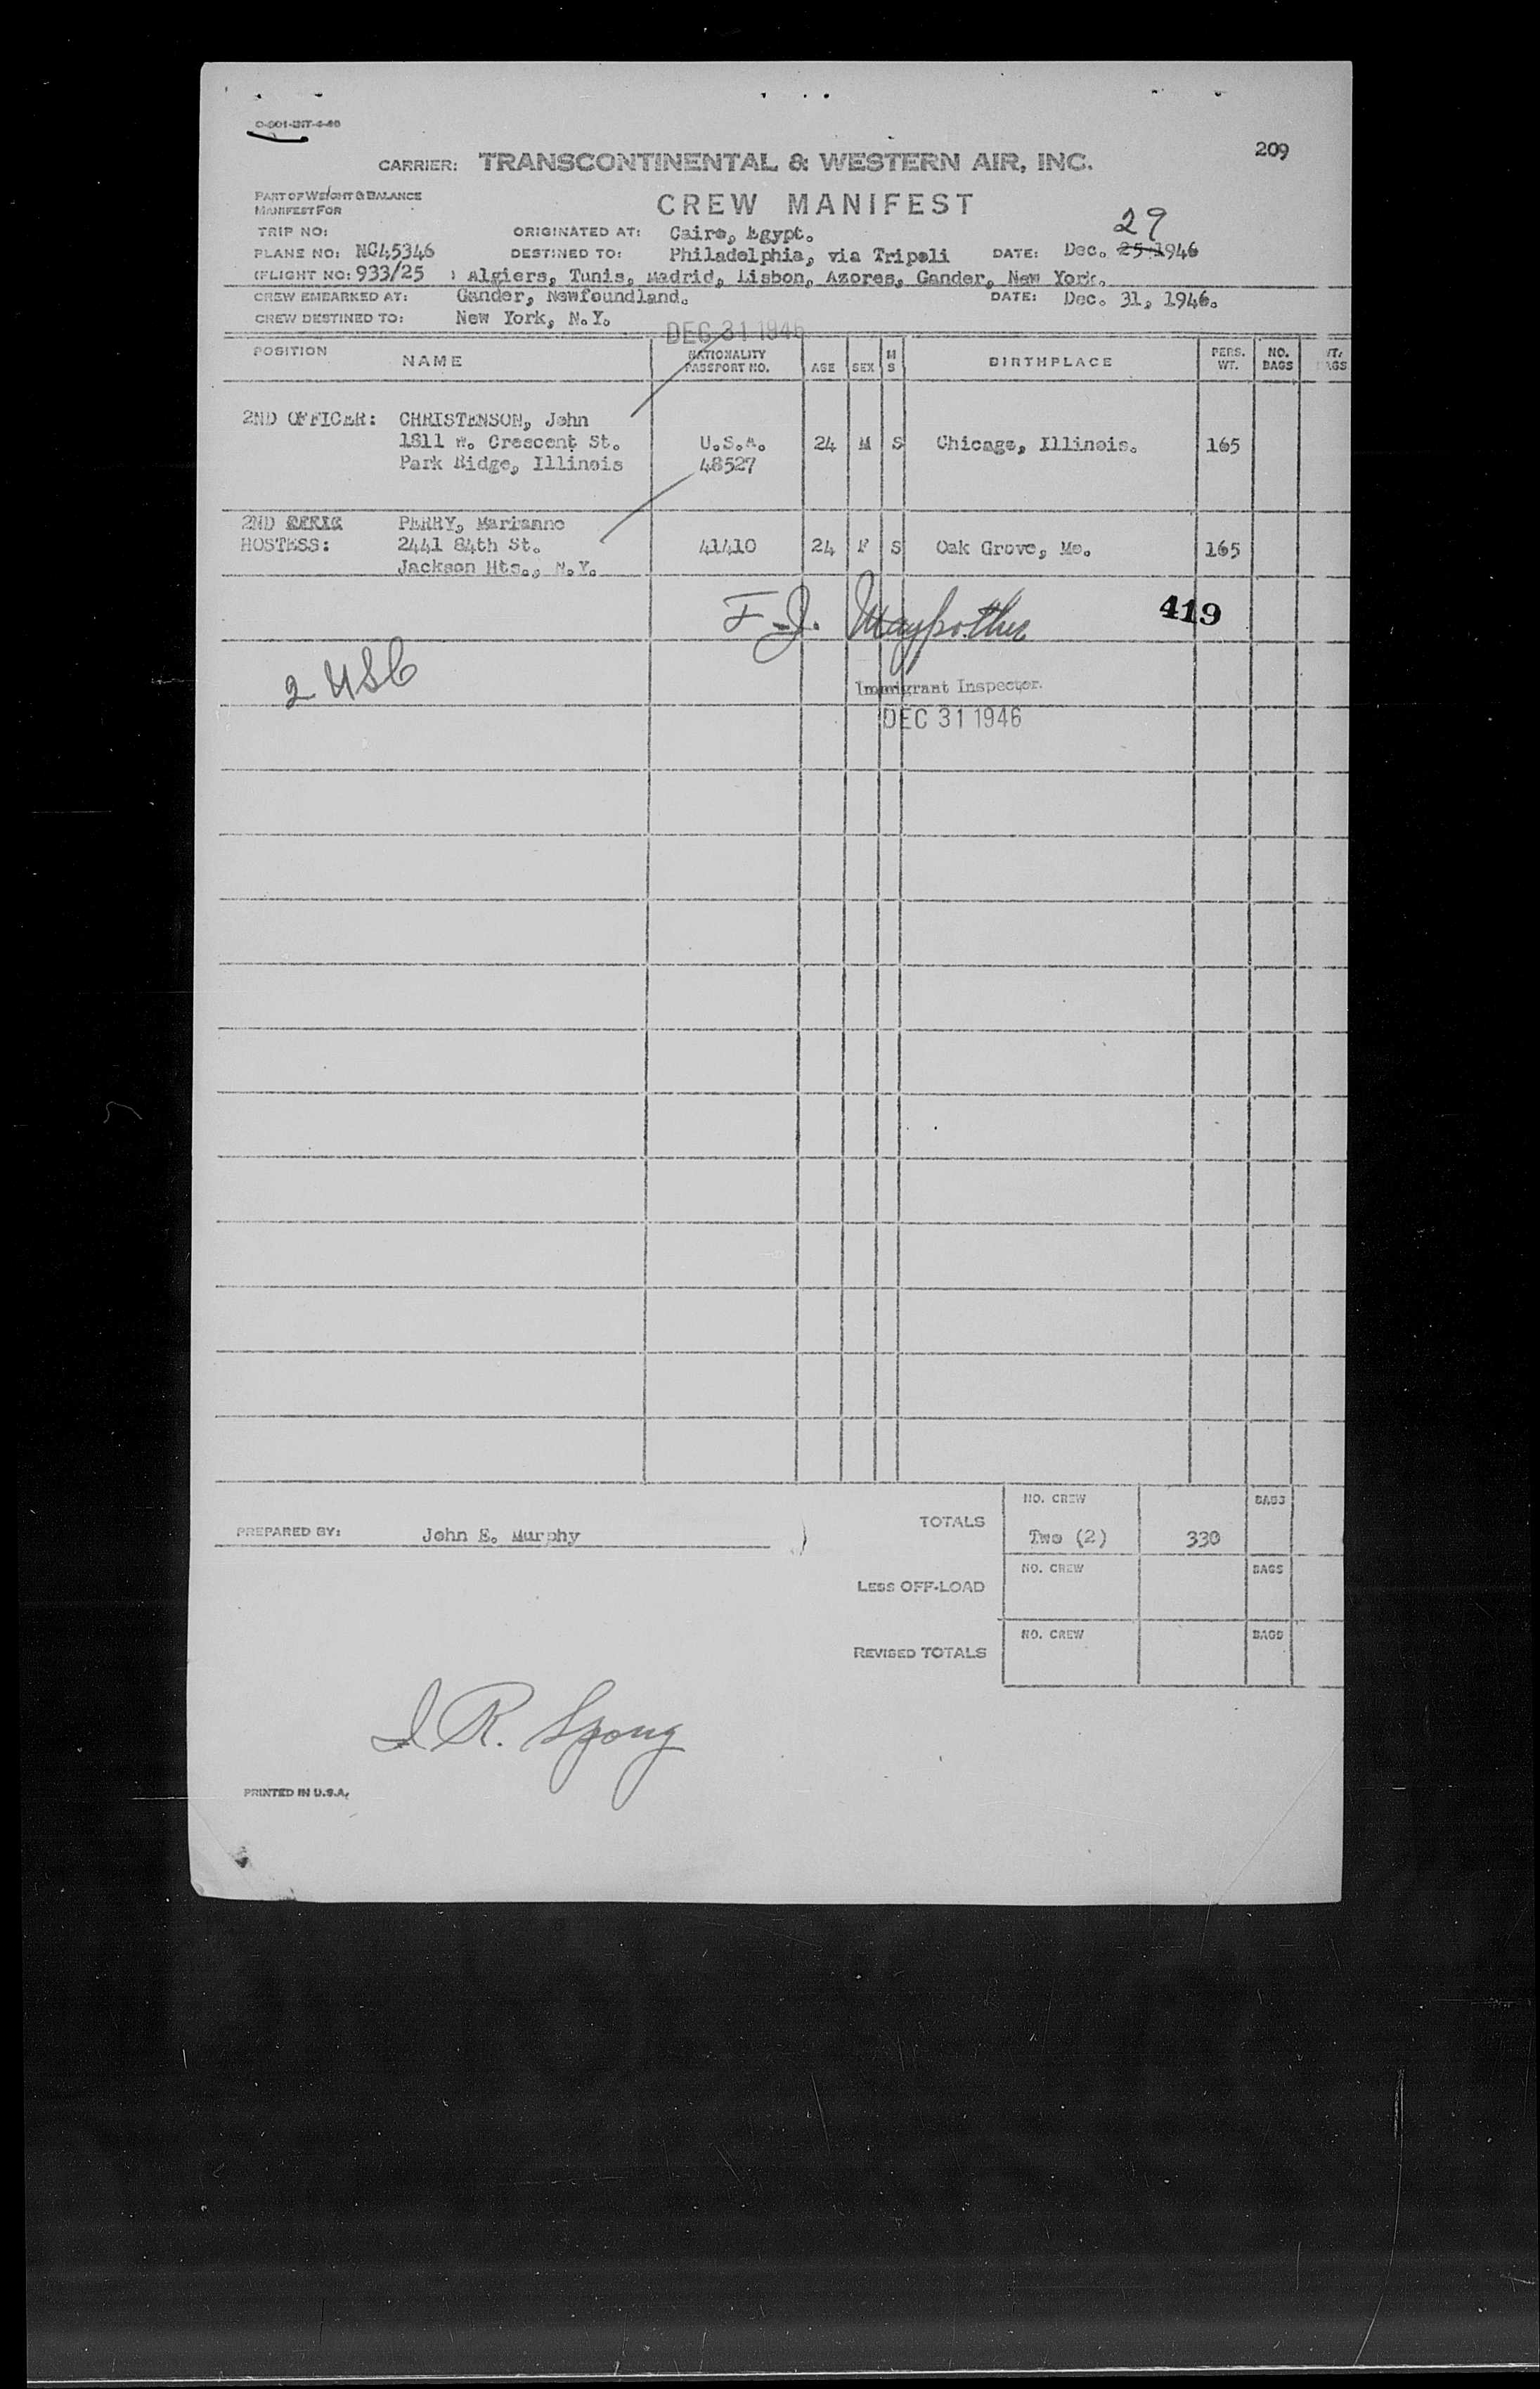 O-901-INT-4-46
209
CARRIER: TRANSCONTINENTAL & WESTERN AIR, INC.
PART OF WEIGHT & BALANCE
MANIFEST FOR
CREW MANIFEST
29
TRIP NO: ORIGINATED AT: Cairo, Egypt.
PLANE NO: NC45346 DESTINED TO: Philadelphia, via Tripoli DATE: Dec. 25 1946
(FLIGHT NO: 933/25 ) Algiers, Tunis, Madrid, Lisbon, Azores, Gander, New York.
CREW EMBARKED AT: Gander, Newfoundland. DATE: Dec. 31, 1946.
CREW DESTINED TO: New York, N.Y.
DEC 31 1946
POSITION NAME NATIONALITY PASSPORT NO. AGE SEX M S BIRTHPLACE PERS. WT. NO. BAGS WT. BAGS
2ND OFFICER: CHRISTENSON, John
1811 W. Crescent St. U.S.A. 24 M S Chicago, Illinois. 165
Park Ridge, Illinois 48527
2ND PERRY, Marianne
HOSTESS: 2441 84th St. 41410 24 F S Oak Grove, Mo. 165
Jackson Hts., N.Y.
F.J. Maypother
419
2 USC
Immigrant Inspector.
DEC 31 1946
NO. CREW BAGS
TOTALS
PREPARED BY: John E. Murphy Two (2) 330
NO. CREW BAGS
LESS OFF-LOAD
NO. CREW BAGS
REVISED TOTALS
I R. Spong
PRINTED IN U.S.A.